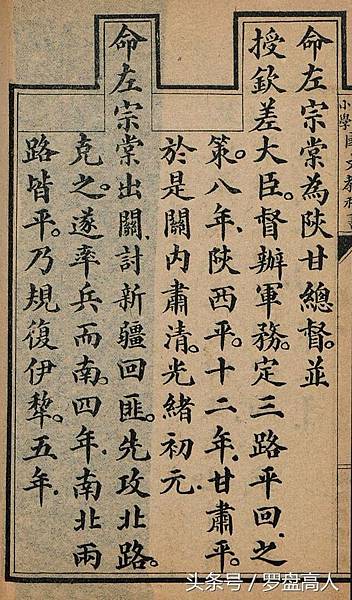 小學國文教科書
命左宗棠為陝甘總督。並
授欽差大臣。督辦軍務。定三路平回之
策。八年、陝西平。十二年、甘肅平。
於是關內肅清。光緒初元、
命左宗棠出關、討新疆回匪。先攻北路。
克之。遂率兵而南。四年、南北兩
路皆平。乃規復伊犂。五年、
头条号/罗盘高人